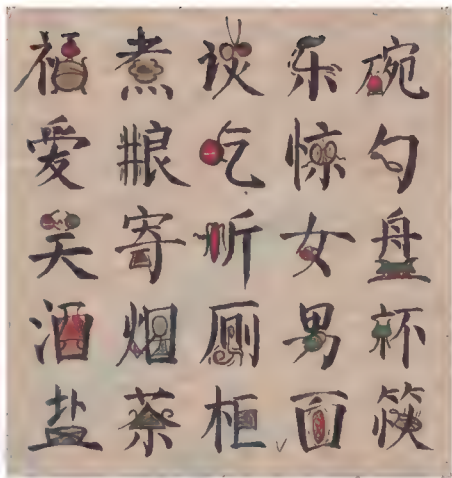 福煮谈乐碗
爱粮吃惊勺
寄听女盘
酒烟厕男杯
盐茶柜面筷